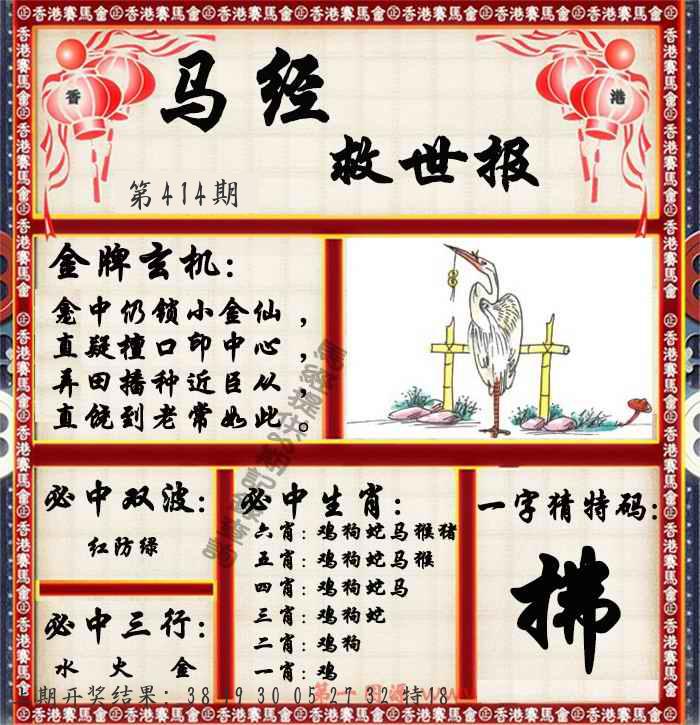 香港賽馬會
香
港
马经
救世报
第414期
金牌玄机：
龛中仍锁小金仙，
直疑檀口印中心，
弄田播种近臣从，
直饶到老常如此。
必中双波：
红防绿
必中三行：
水 火 金
必中生肖：
六肖：鸡狗蛇马猴猪
五肖：鸡狗蛇马猴
四肖：鸡狗蛇马
三肖：鸡狗蛇
二肖：鸡狗
一肖：鸡
一字猜特码：
拂
期开奖结果：38 19 30 05 27 32 特 18